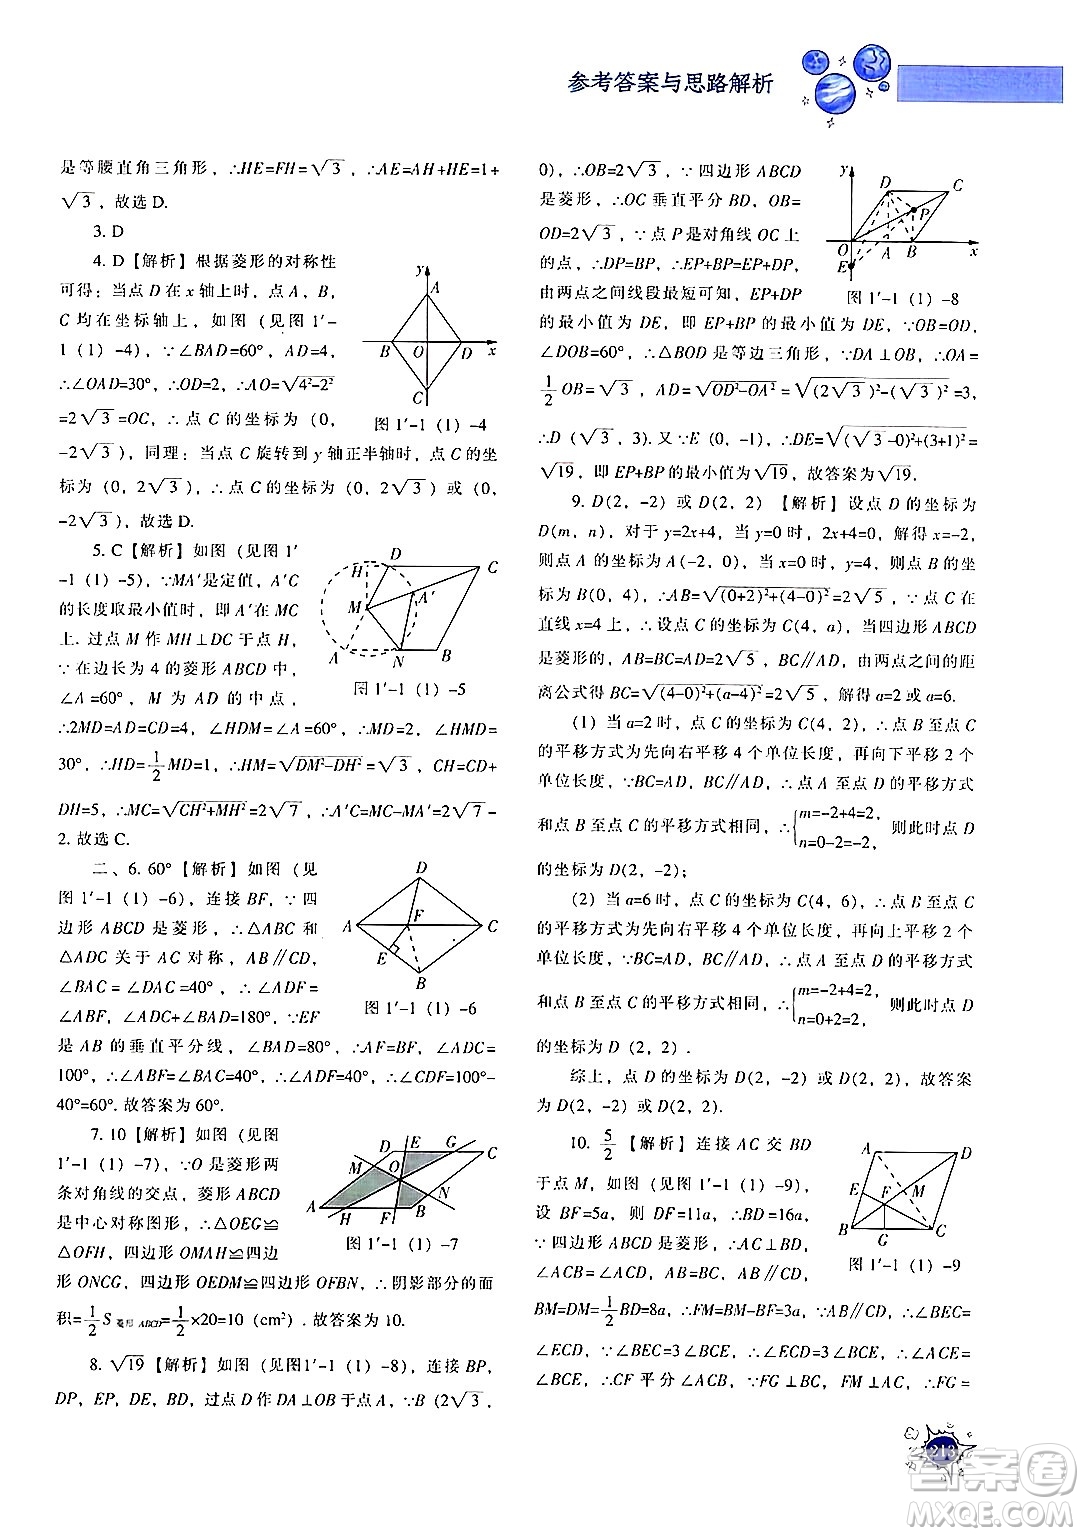 参考答案与思路解析
是等腰直角三角形，∴HE=FH=√3，∴AE=AH+HE=1+
√3，故选 D.
3. D
4. D【解析】根据菱形的对称性
可得：当点 D 在 x 轴上时，点 A，B，
C 均在坐标轴上，如图（见图1′-
1（1）-4），∵∠BAD=60°，AD=4，
∴∠OAD=30°，∴OD=2，∴AO=√(4²-2²)
=2√3=OC，∴点 C 的坐标为（0，
-2√3），同理：当点 C 旋转到 y 轴正半轴时，点 C 的坐
标为（0，2√3），∴点 C 的坐标为（0，2√3）或（0，
-2√3），故选 D.
y A B O D x C
图 1′-1（1）-4
5. C【解析】如图（见图1′
-1（1）-5），∵MA′是定值，A′C
的长度取最小值时，即 A′在 MC
上. 过点 M 作 MH⊥DC 于点 H，
∵在边长为 4 的菱形 ABCD 中，
∠A=60°，M 为 AD 的中点，
∴2MD=AD=CD=4，∠HDM=∠A=60°，∴∠HMD=
30°，∴HD=1/2MD=1，∴HM=√(DM²-DH²)=√3，∴CH=CD+
DH=5，∴MC=√(CH²+MH²)=2√7，∴A′C=MC-MA′=2√7-
2. 故选 C.
H D C M A′ A N B
图 1′-1（1）-5
二、6. 60°【解析】如图（见
图 1′-1（1）-6），连接 BF，∵四
边形 ABCD 是菱形，∴△ABC 和
△ADC 关于 AC 对称，AB∥CD，
∠BAC=∠DAC=40°，∴∠ADF=
∠ABF，∠ADC+∠BAD=180°，∵EF
是 AB 的垂直平分线，∠BAD=80°，∴AF=BF，∠ADC=
100°，∴∠ABF=∠BAC=40°，∴∠ADF=40°，∴∠CDF=100°-
40°=60°. 故答案为 60°.
D A F C E B
图 1′-1（1）-6
7. 10【解析】如图（见图
1′-1（1）-7），∵O 是菱形两
条对角线的交点，菱形 ABCD
是中心对称图形，∴△OEG≌
△OFH，四边形 OMAH≌四边
形 ONCG，四边形 OEDM≌四边形 OFBN，∴阴影部分的面
积=1/2S菱形ABCD=1/2×20=10（cm²）. 故答案为 10.
M D E G C O N A H F B
图 1′-1（1）-7
8. √19【解析】如图（见图1′-1（1）-8），连接 BP，
DP，EP，DE，BD，过点 D 作 DA⊥OB 于点 A，∵B（2√3，
0），∴OB=2√3，∵四边形 ABCD
是菱形，∴OC 垂直平分 BD，OB=
OD=2√3，∵点 P 是对角线 OC 上
的点，∴DP=BP，∴EP+BP=EP+DP，
由两点之间线段最短可知，EP+DP
的最小值为 DE，即 EP+BP 的最小值为 DE，∵OB=OD，
∠DOB=60°，∴△BOD 是等边三角形，∵DA⊥OB，∴OA=
1/2OB=√3，AD=√(OD²-OA²)=√((2√3)²-(√3)²)=3，
∴D（√3，3）. 又∵E（0，-1），∴DE=√((√3-0)²+(3+1)²)=
√19，即 EP+BP 的最小值为√19，故答案为√19.
y D C P O A B x E
图 1′-1（1）-8
9. D(2，-2）或 D(2，2）【解析】设点 D 的坐标为
D(m，n)，对于 y=2x+4，当 y=0 时，2x+4=0，解得 x=-2，
则点 A 的坐标为 A(-2，0)；当 x=0 时，y=4，则点 B 的坐
标为 B(0，4)，∴AB=√((0+2)²+(4-0)²)=2√5，∵点 C 在
直线 x=4 上，∴设点 C 的坐标为 C(4，a)，当四边形 ABCD
是菱形的，AB=BC=AD=2√5，BC∥AD，由两点之间的距
离公式得 BC=√((4-0)²+(a-4)²)=2√5，解得 a=2 或 a=6.
(1）当 a=2 时，点 C 的坐标为 C(4，2)，∴点 B 至点 C
的平移方式为先向右平移 4 个单位长度，再向下平移 2 个
单位长度，∵BC=AD，BC∥AD，∴点 A 至点 D 的平移方式
和点 B 至点 C 的平移方式相同，∴{m=-2+4=2，n=0-2=-2，则此时点 D
的坐标为 D(2，-2)；
(2）当 a=6 时，点 C 的坐标为 C(4，6)，∴点 B 至点 C
的平移方式为先向右平移 4 个单位长度，再向上平移 2 个
单位长度，∵BC=AD，BC∥AD，∴点 A 至点 D 的平移方式
和点 B 至点 C 的平移方式相同，∴{m=-2+4=2，n=0+2=2，则此时点 D
的坐标为 D（2，2）.
综上，点 D 的坐标为 D(2，-2）或 D(2，2)，故答案
为 D(2，-2）或 D(2，2).
10. 5/2【解析】连接 AC 交 BD
于点 M，如图（见图1′-1（1）-9），
设 BF=5a，则 DF=11a，∴BD=16a，
∵四边形 ABCD 为菱形，∴AC⊥BD，
∠ACB=∠ACD，AB=BC，AB∥CD，
BM=DM=1/2BD=8a，∴FM=BM-BF=3a，∵AB∥CD，∴∠BEC=
∠ECD，∵∠BEC=3∠ECB，∴∠ECD=3∠BCE，∴∠ACE=
∠BCE，∴CF 平分∠ACB，∵FG⊥BC，FM⊥AC，∴FG=
A D E F M B G C
图 1′-1（1）-9
213
答案圈
MXQE.COM